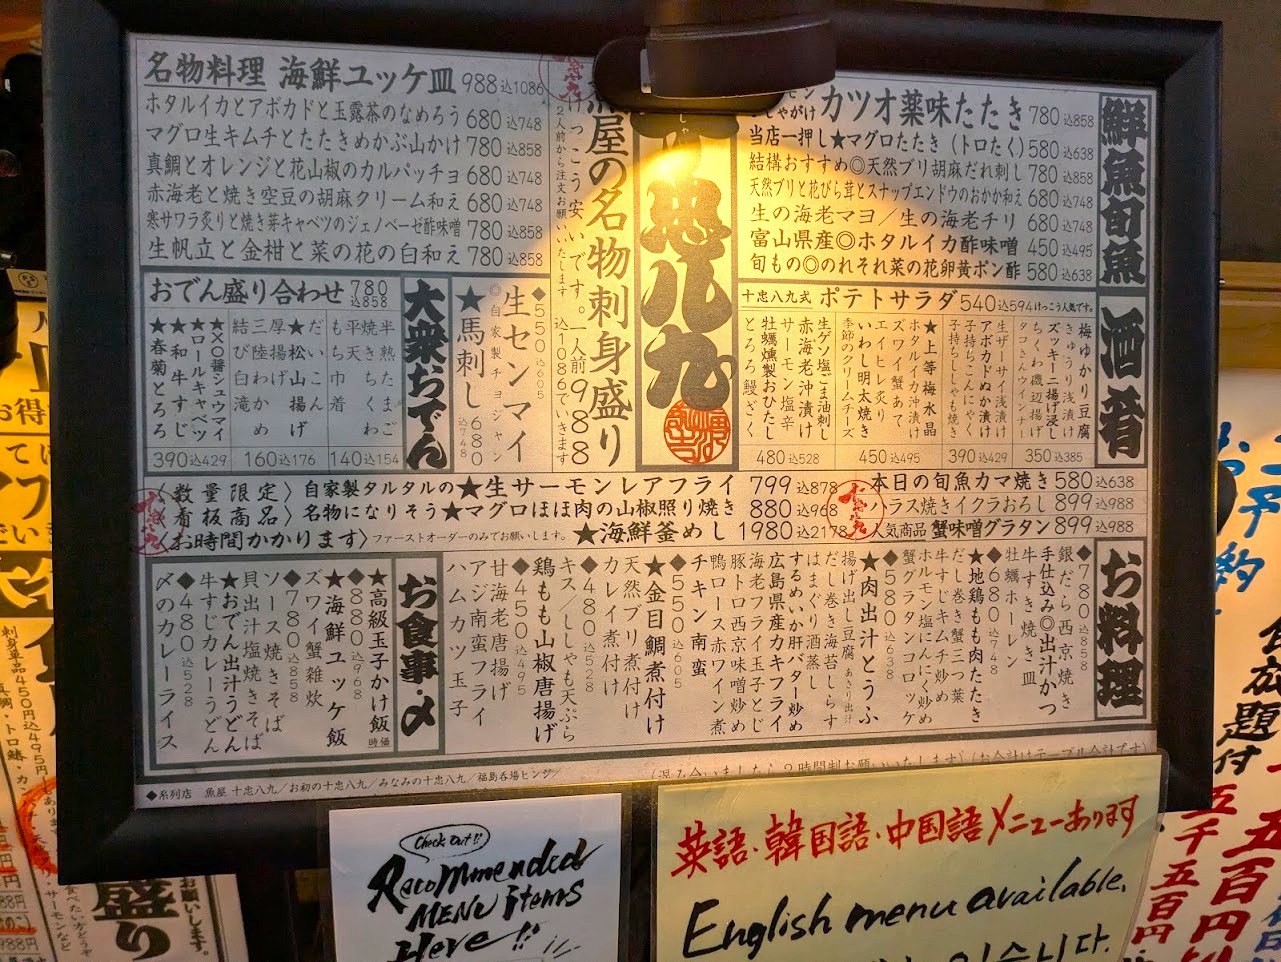 鮮魚旬魚
カツオ薬味たたき 780込858
当店一押し★マグロたたき（トロたく）580込638
結構おすすめ◎天然ブリ胡麻だれ刺し 780込858
天然ブリと花びら茸とスナップエンドウのおかか和え 680込748
生の海老マヨ／生の海老チリ 680込748
富山県産◎ホタルイカ酢味噌 450込495
旬もの◎のれそれ菜の花卵黄ポン酢 580込638
忠八九
魚屋の名物刺身盛り
けっこう安いです。一人前988
2人前から注文お願いたします 込1086
名物料理 海鮮ユッケ皿 988込1086
ホタルイカとアボカドと玉露茶のなめろう 680込748
マグロ生キムチとたたきめかぶ山かけ 780込858
真鯛とオレンジと花山椒のカルパッチョ 680込748
赤海老と焼き空豆の胡麻クリーム和え 680込748
寒サワラ炙りと焼き芽キャベツのジェノベーゼ酢味噌 780込858
生帆立と金柑と菜の花の白和え 780込858
酒肴
十忠八九式 ポテトサラダ 540込594けっこう人気です。
梅ゆかり豆腐
きゅうり浅漬け
ズッキーニ揚げ浸し
ちくわ磯辺揚げ
タコさんウインナー
350込385
アボカドぬか漬け
子持ちこんにゃく
子持ちししゃも焼き
390込429
★上等梅水晶
ホタルイカ沖漬け
ズワイ蟹あて
エイヒレ炙り
いわし明太焼き
季節のクリームチーズ
450込495
生ゲソ塩ごま油刺し
赤海老沖漬け
サーモン塩辛
牡蠣燻製おひたし
とろろ鰻ざく
480込528
◆550込605
生センマイ
◎自家製チョジャン
★馬刺し 680
込748
大衆おでん
おでん盛り合わせ 780込858
半熟たまご
焼きちくわ
平天
もち巾着
140込154
だいこん
★松山揚げ
厚揚げ
三陸わかめ
結び白滝
160込176
★XO醤シュウマイ
★ロールキャベツ
★和牛すじ
★春菊とろろ
390込429
〈数量限定〉自家製タルタルの★生サーモンレアフライ 799込878
〈看板商品〉名物になりそう★マグロほほ肉の山椒照り焼き 880込968
〈お時間かかります〉ファーストオーダーのみでお願いします。★海鮮釜めし 1980込2178
本日の旬魚カマ焼き 580込638
ハラス焼きイクラおろし 899込988
人気商品 蟹味噌グラタン 899込988
お料理
◆780込858
銀だら西京焼き
手仕込み◎出汁かつ
牛すき焼き皿
牡蠣ホーレン
◆680込748
★地鶏もも肉たたき
だし巻き蟹三つ葉
牛もつにんにく炒め
ホルモン塩
蟹グラタンコロッケ
◆580込638
★肉出汁とうふ
揚げ出し豆腐
だし巻き海苔しらす
はまぐり酒蒸し
するめいか肝バター炒め
広島県産カキフライ
海老フライ玉子とじ
豚トロ西京味噌炒め
鴨ロース赤ワイン煮
チキン南蛮
◆550込605
★金目鯛煮付け
天然ブリ煮付け
カレイ煮付け
◆480込528
キス／ししゃも天ぷら
鶏もも山椒唐揚げ
◆450込495
甘海老唐揚げ
アジ南蛮フライ
ハムカツ玉子
お食事・〆
★高級玉子かけ飯 時価
◆880込968
★海鮮ユッケ飯
ズワイ蟹雑炊
◆780込858
ソース焼きそば
貝出汁塩焼きそば
★おでん出汁うどん
牛すじカレーうどん
◆480込528
〆のカレーライス
◆系列店 魚屋 十忠八九／お初の十忠八九／みなみの十忠八九／福島呑場ヒンジ／
（混み合いましたら2時間制お願いいたします）（お会計はテーブル会計です）
Check Out!!
Recommended
MENU items
Here!!
英語・韓国語・中国語メニューあります
English menu available.
お予約
放題付
五千五百円